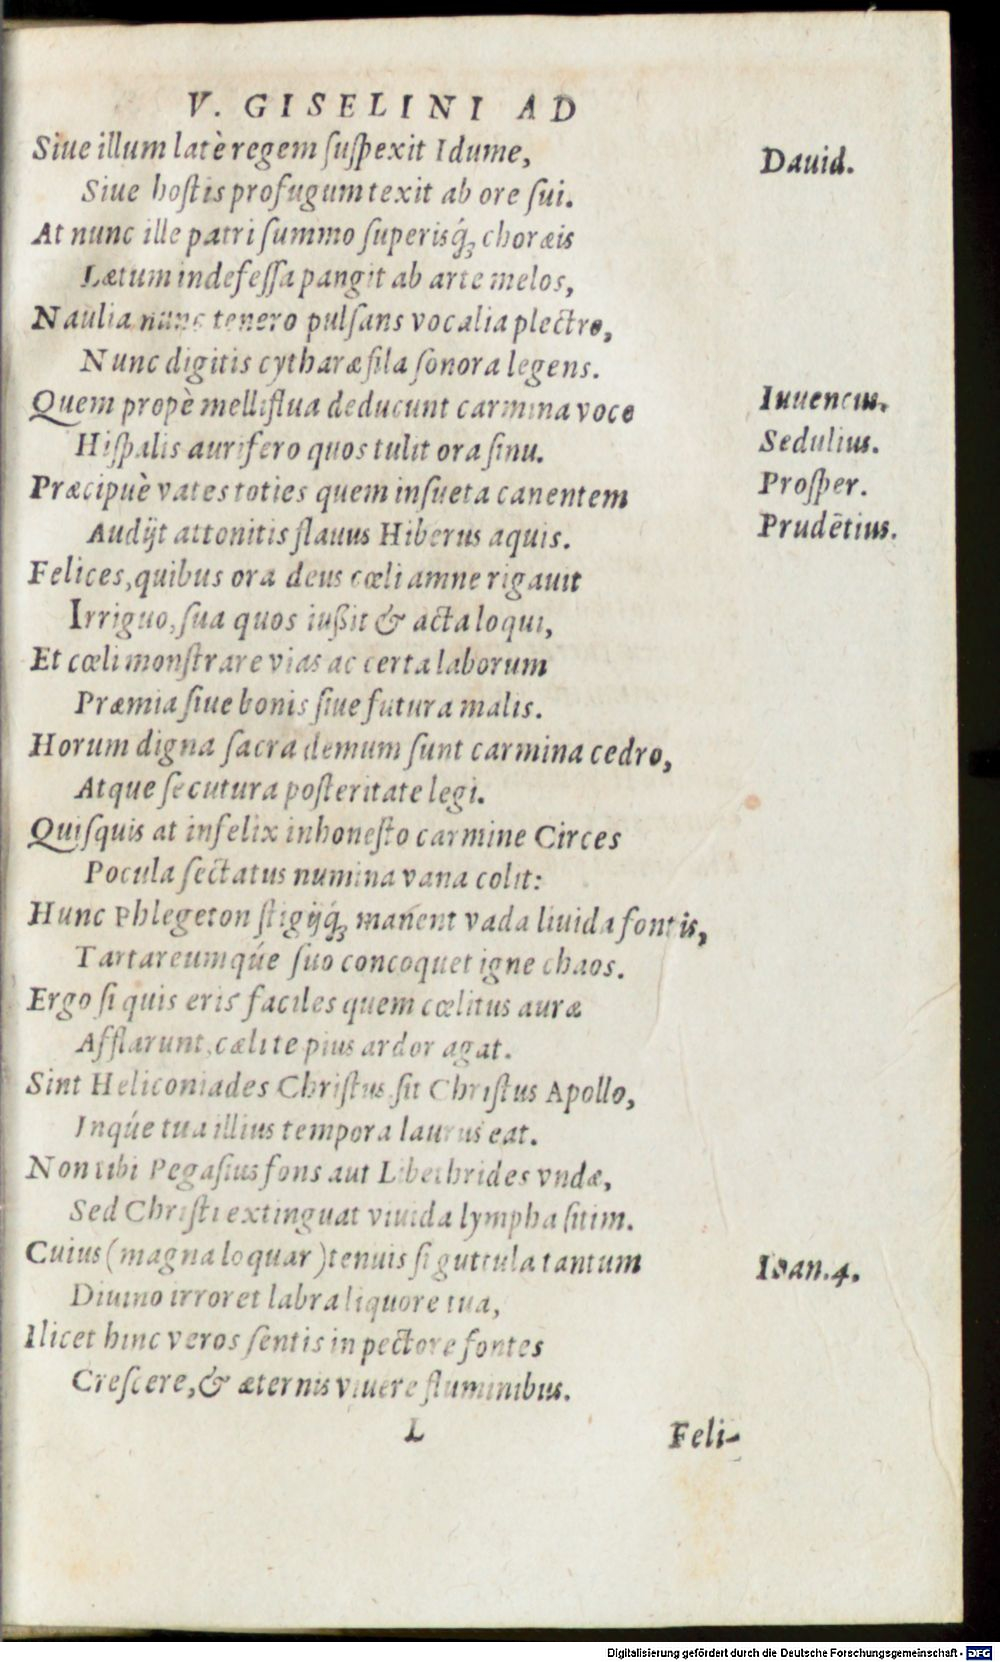 V. GISELINI AD
Siue illum latè regem ſuſpexit Idume,
Dauid.
Siue hoſtis profugum texit ab ore ſui.
At nunc ille patri ſummo ſuperisq́ꝫ choræis
Lætum indefeſſa pangit ab arte melos,
Naulia nunc tenero pulſans vocalia plectro,
Nunc digitis cytharæ fila ſonora legens.
Quem propè melliflua deducunt carmina voce
Iuuencus.
Hiſpalis aurifero quos tulit ora ſinu.
Sedulius.
Præcipuè vates toties quem inſueta canentem
Proſper.
Audijt attonitis flauus Hiberus aquis.
Prudētius.
Felices, quibus ora deus cœli amne rigauit
Irriguo, ſua quos iußit & acta loqui,
Et cœli monſtrare vias ac certa laborum
Præmia ſiue bonis ſiue futura malis.
Horum digna ſacra demum ſunt carmina cedro,
Atque ſecutura poſteritate legi.
Quiſquis at infelix inhoneſto carmine Circes
Pocula ſectatus numina vana colit:
Hunc Phlegeton ſtigijq́ꝫ manent vada liuida fontis,
Tartareumq́ue ſuo concoquet igne chaos.
Ergo ſi quis eris faciles quem cœlitus auræ
Afflarunt, cælite pius ardor agat.
Sint Heliconiades Chriſtus, ſit Chriſtus Apollo,
Inq́ue tua illius tempora laurus eat.
Non tibi Pegaſius fons aut Libethrides vndæ,
Sed Chriſti extinguat viuida lympha ſitim.
Cuius (magna loquar) tenuis ſi guttula tantum
Ioan.4.
Diuino irroret labra liquore tua,
Ilicet hinc veros ſentis in pectore fontes
Creſcere, & æternis viuere fluminibus.
L
Feli-
Digitalisierung gefördert durch die Deutsche Forschungsgemeinschaft - DFG